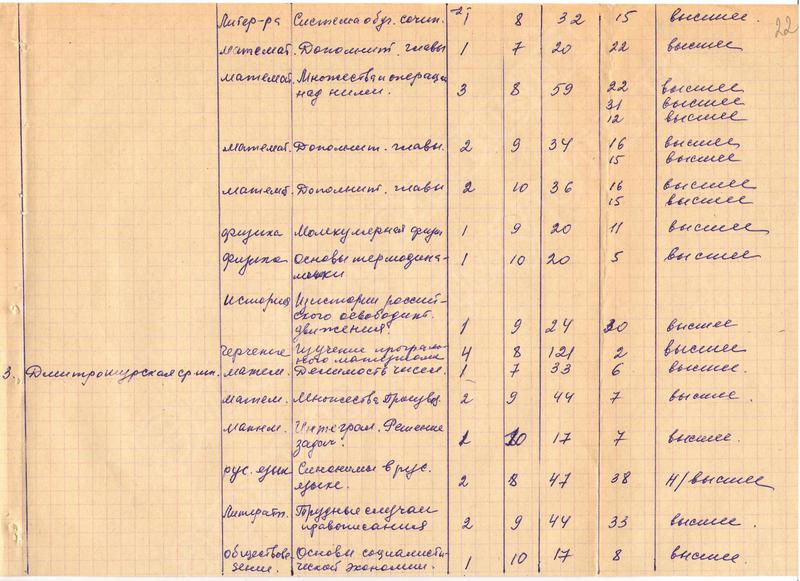 -2-
22
Литер-ра Система обуч. сочин. 1 8 32 15 высшее.
математ. Дополнит. главы 1 7 20 22 высшее
математ. Множества и операции
над ними. 3 8 59 22 высшее
31 высшее
12 высшее
математ. Дополнит. главы. 2 9 34 16 высшее
15 высшее
математ. Дополнит. главы 2 10 36 16 высшее
15 высшее
физика Молекулярная физи 1 9 20 11 высшее
физика Основы термодина- 1 10 20 5 высшее.
мики
история Из истории россий-
ского освободит.
движения. 1 9 24 высшее.
черчение Изучение програм- 4 8 121 2 высшее
много материала
3. Дмитрошурская ср шк. матем. Делимость чисел. 1 7 33 6 высшее.
матем. Множества. Производ. 2 9 44 7 высшее.
матем. Интеграл. Решение
задач. 2 10 17 7 высшее.
рус. язык Синонимы в рус.
языке. 2 8 47 38 н/высшее
Литерат. Трудные случаи
правописания 2 9 44 33 высшее.
обществове- Основы социалисти-
дение. ческой экономии. 1 10 17 8 высшее.